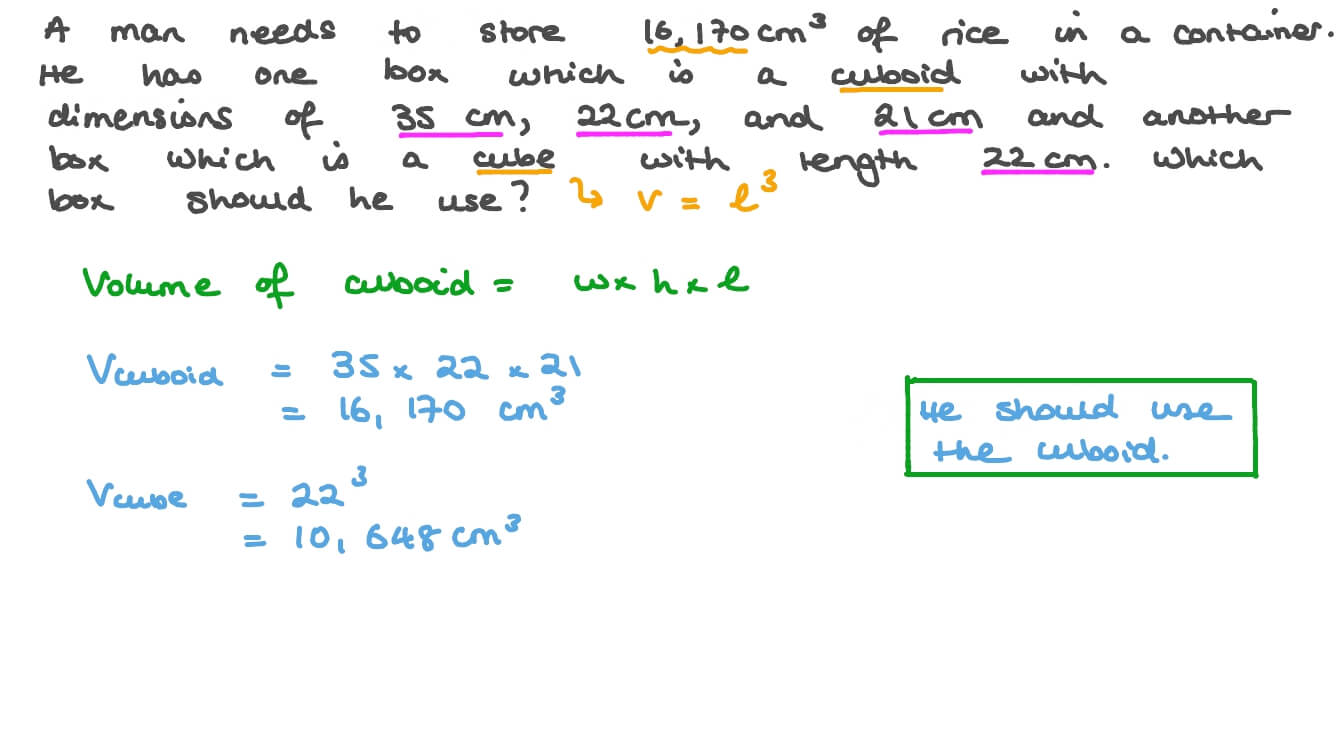 A man needs to store 16,170 cm³ of rice in a container.
He has one box which is a cuboid with
dimensions of 35 cm, 22 cm, and 21 cm and another
box which is a cube with length 22 cm. Which
box should he use? ↳ v = l³
Volume of cuboid = w × h × l
Vcuboid = 35 × 22 × 21
= 16,170 cm³
He should use
the cuboid.
Vcube = 22³
= 10,648 cm³